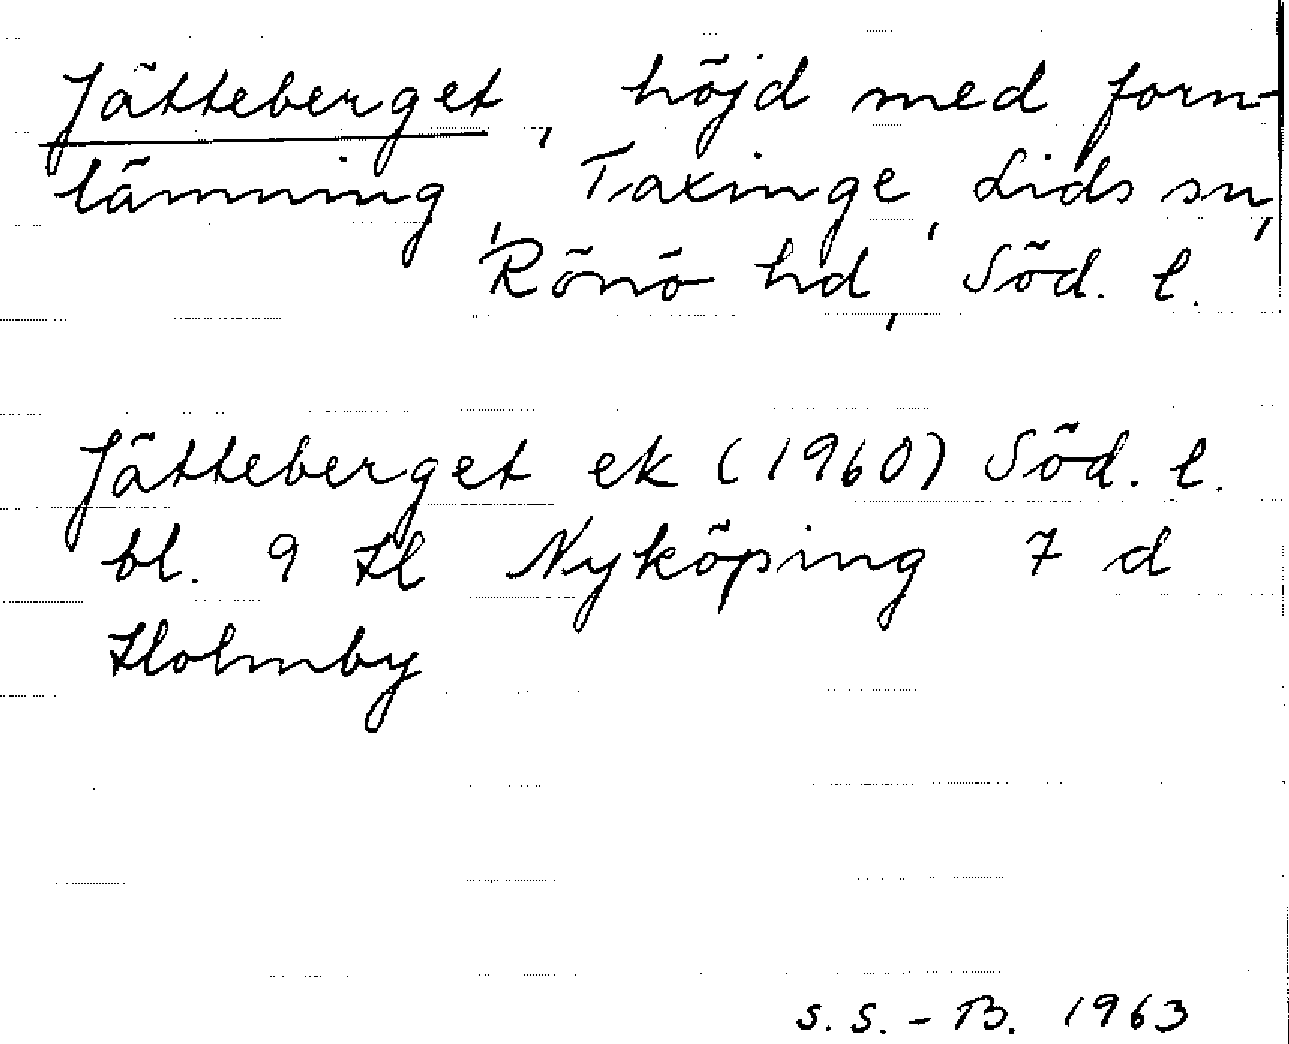 Jätteberget, höjd med forn-
lämning, Taxinge, Lids sn,
Rönö hd, Söd. l.
Jätteberget ek (1960) Söd. l.
bl. 9 H Nyköping 7 d
Holmby
S. S. - B. 1963